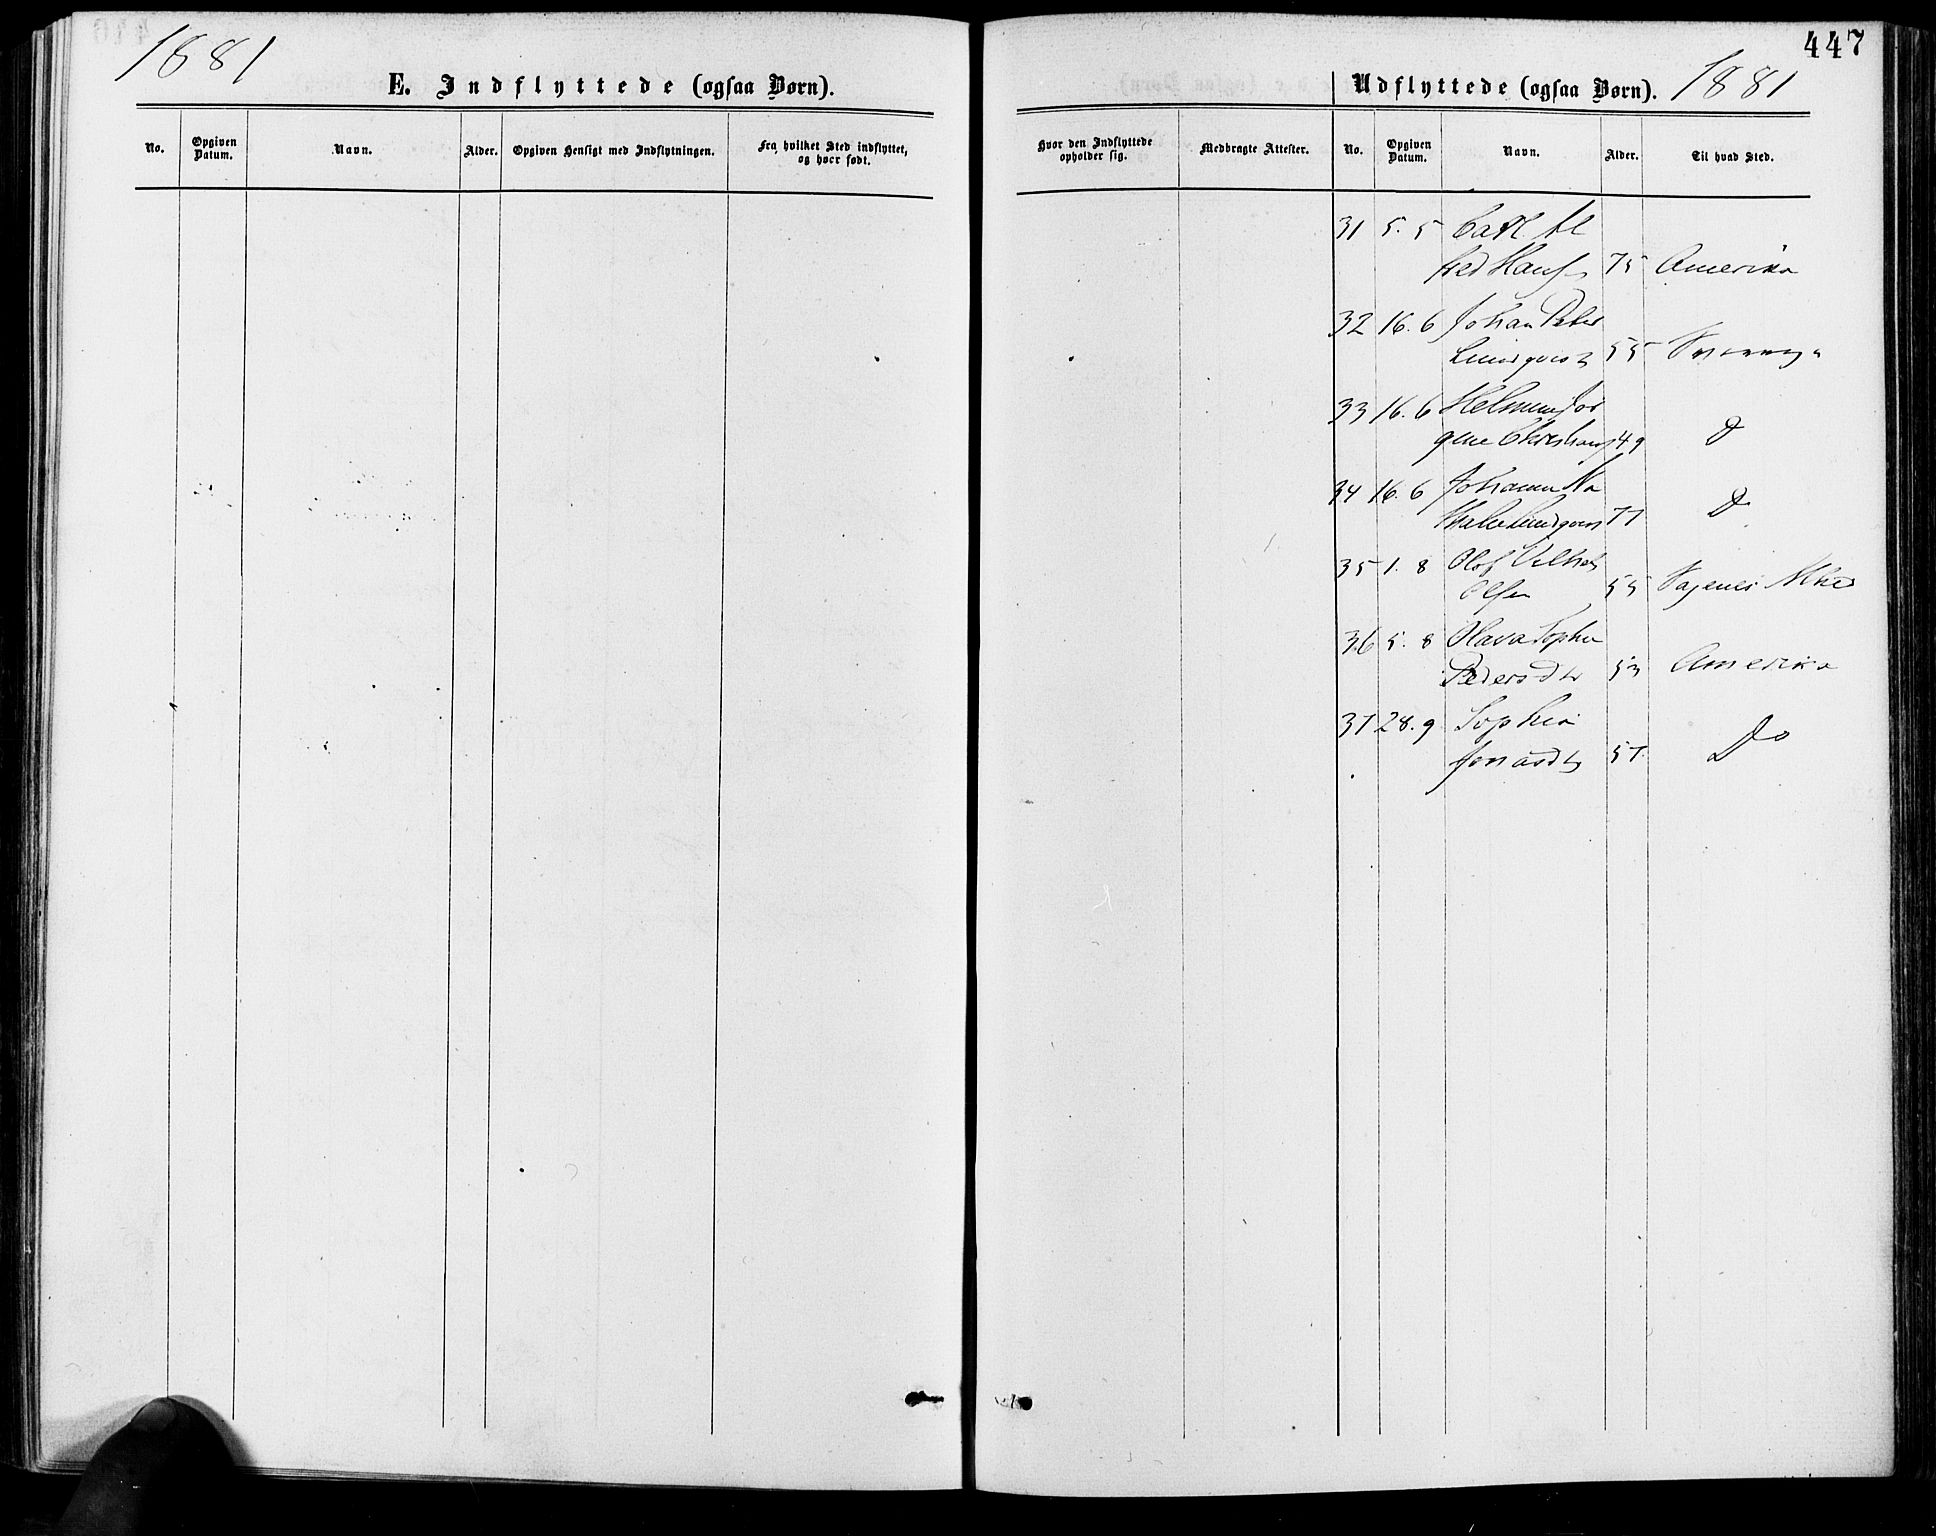 1881
E. Indflyttede (ogsaa Børn).
No.
Opgiven
Datum.
Navn.
Alder.
Opgiven Hensigt med Indflytningen.
Fra hvilket Sted indflyttet,
og hvor født.
447
Udflyttede (ogsaa Børn). 1881
Hvor den Indflyttede
opholder sig.
Medbragte Attester.
No.
Opgiven
Datum.
Navn.
Alder.
Til hvad Sted.
31 5. 5 Carl Al
fred Hans 75 Amerika
32 16. 6 Johan Peter
Lundqvist 55
33 16. 6
49 D
34 16. 6 Johanna Ma
77 D
35 1. 8 Olof Vilhelm
Olsen 55
36 5. 8 Olava Sophie
Pedersdtr 53 Amerika
37 28. 9 Sophia
Jonasdtr 57 Do